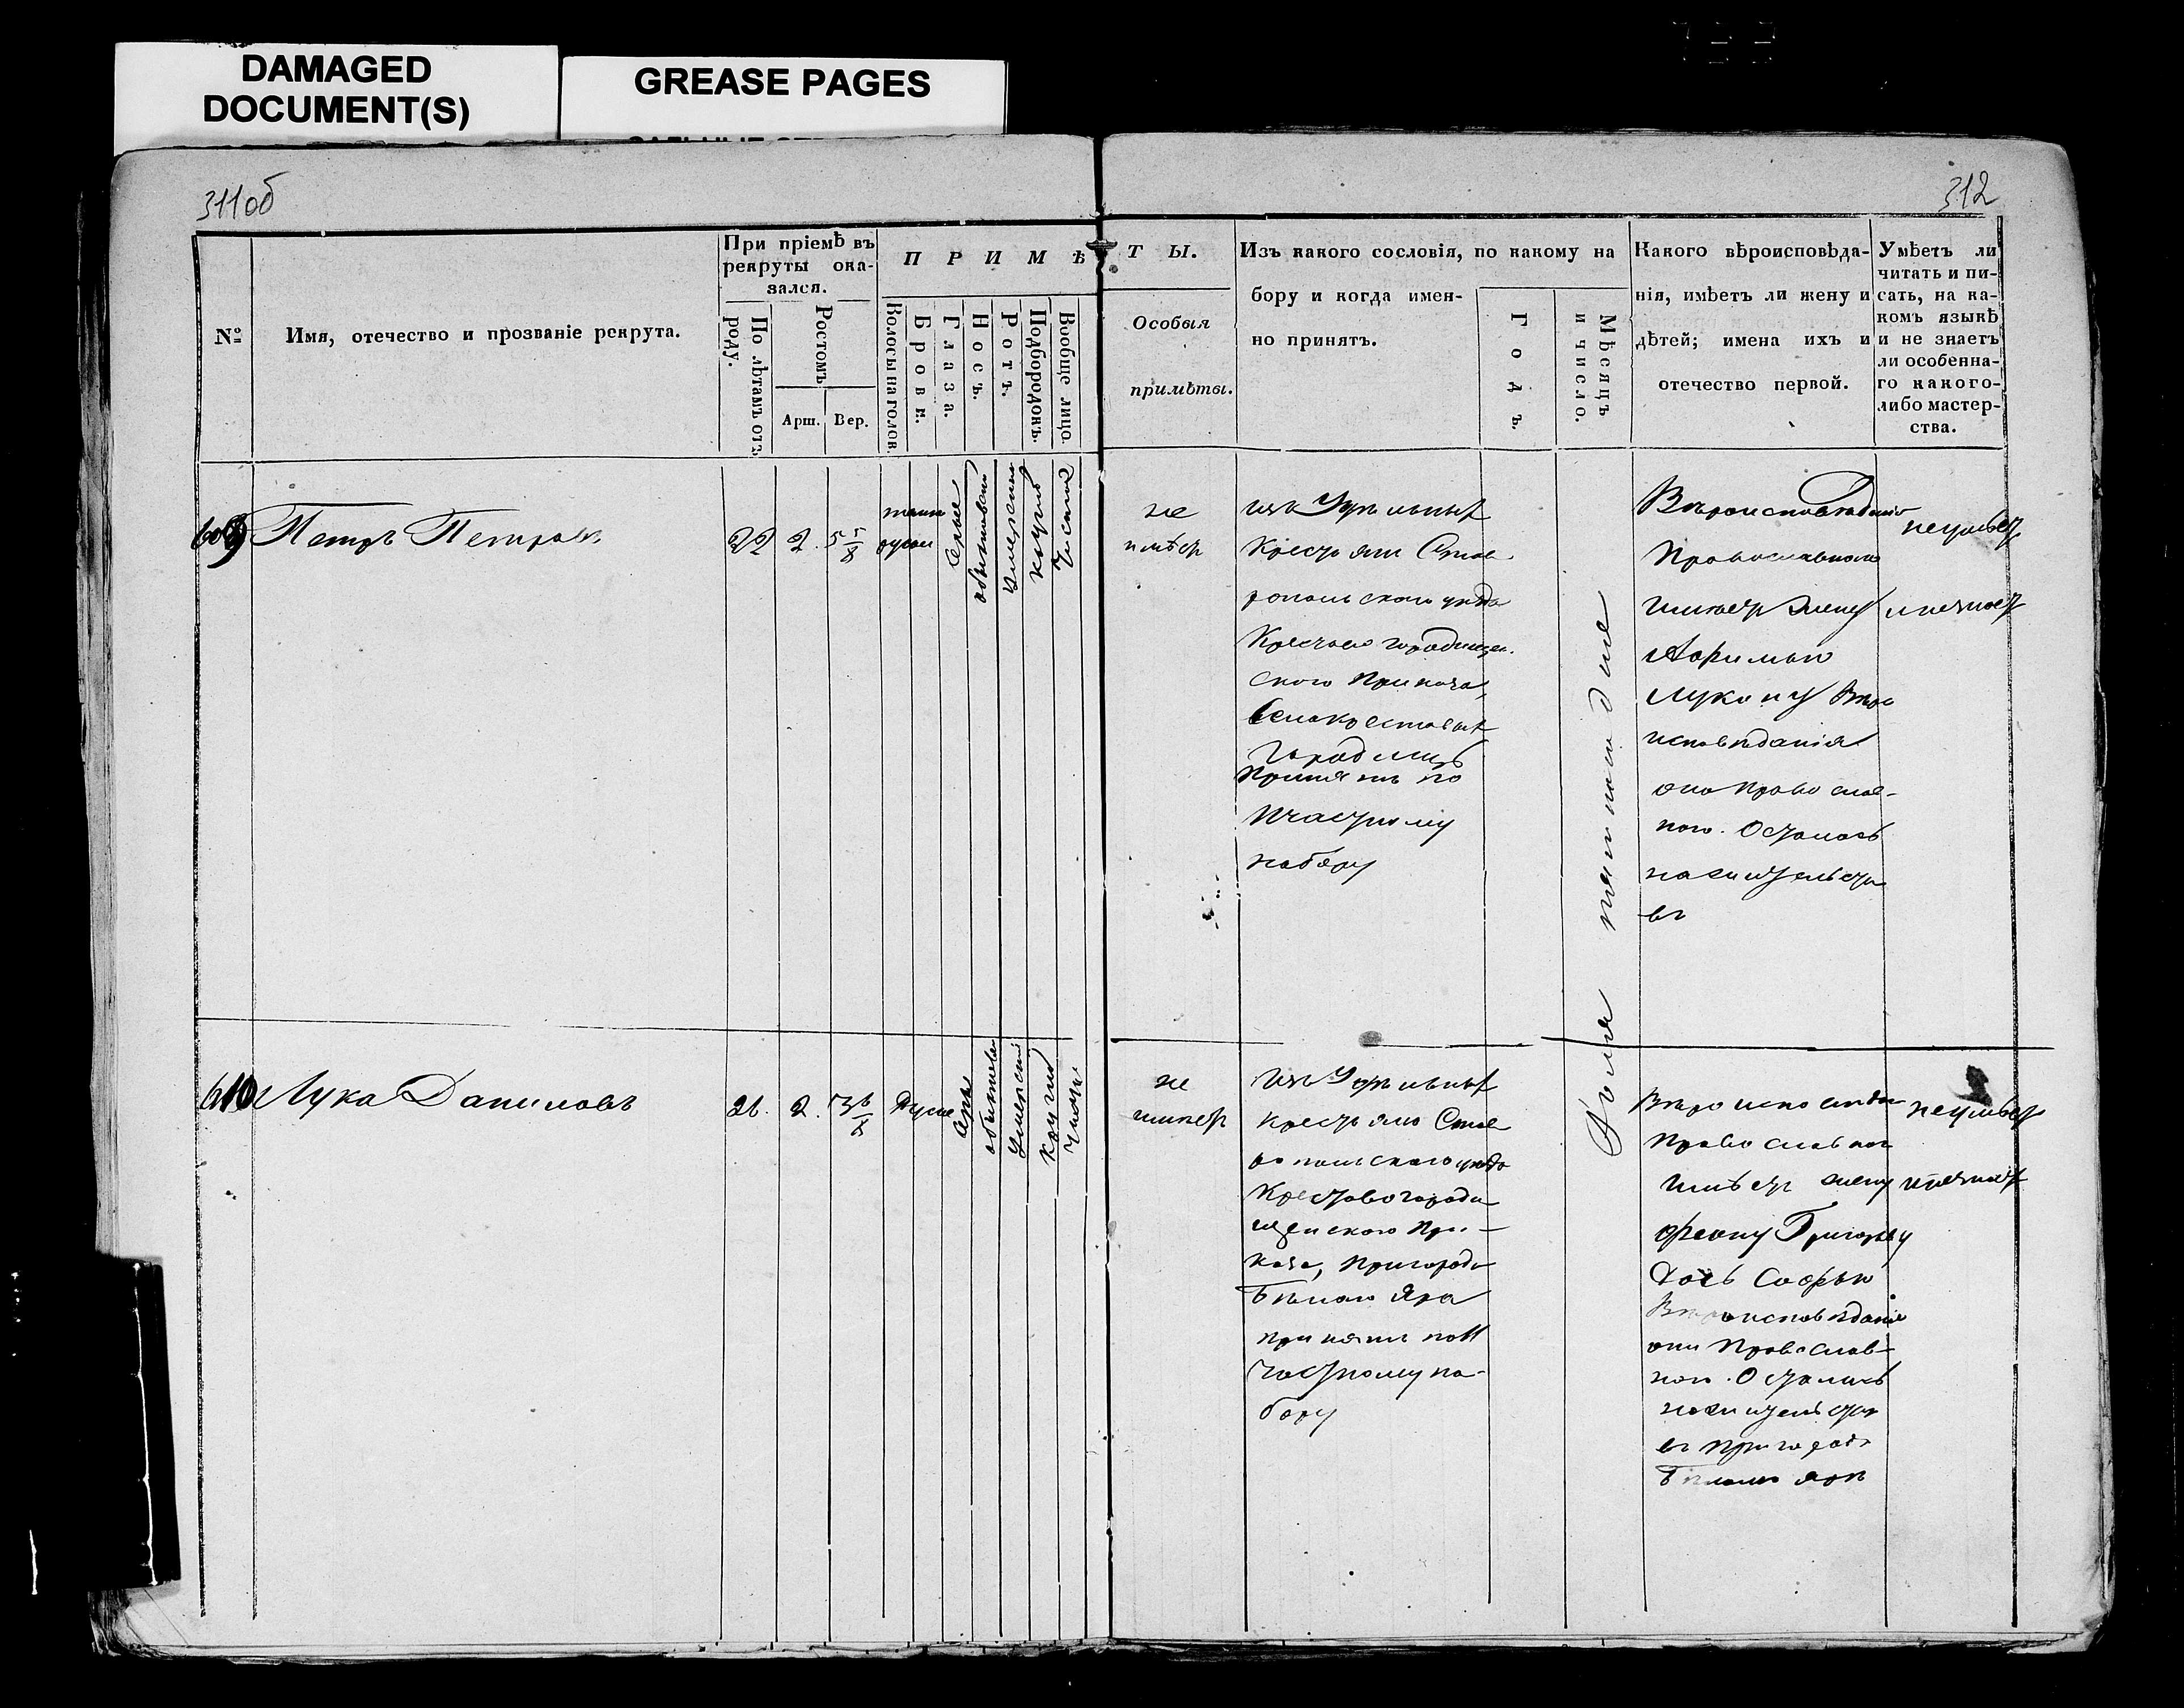 DAMAGED
DOCUMENT(S)
GREASE PAGES
311об
312
№
Имя, отечество и прозваніе рекрута.
При пріемѣ въ
рекруты ока-
зался.
По лѣтамъ отъ
роду.
Ростомъ
Арш.
Вер.
ПРИМѢ
Волосы на голов.
Брови.
Глаза.
Носъ.
Ротъ.
Подбородокъ.
Вообще лицо.
ТЫ.
Особыя
примѣты.
Изъ какого сословія, по какому на
бору и когда имен-
но принятъ.
Годъ.
Мѣсяцъ
и число.
Какого вѣроисповѣда-
нія, имѣетъ ли жену и
дѣтей; имена ихъ и
отечество первой.
Умѣетъ ли
читать и пи-
сать, на ка-
комъ языкѣ
и не знаетъ
ли особенна-
го какого-
либо мастер-
ства.
609
Петръ Петровъ
22
2.
5 5/8
темно
русые
Серые
обыкновен
умерен
круглой
Чистое
не
имѣет
изъ Удельных
Крестьян Став
ропольскаго уезда
Крестово городищен.
скаго Приказа,
Села крестовых
Городищ
Принят по
частному
набору
Вѣроисповѣданія
Православного
имеет жену
Лукину Веро
исповѣданія
она Православ-
ного. Осталась
на жительст
въ
неумеет
и незнает
610
Лука Даниловъ
26.
2.
3 6/8
Русые
Серы
обыкнове
Умеренный
круглой
Чистое
не
имеет
Изъ Удельных
крестьян Став
ропольскаго уезда
Крестовогороди
щенскаго При-
каза, Пригорода
Бѣлаго Яра
принятъ по II
Частному на-
бору
Вѣро исповѣда
Православног
имѣет жену
Феону Григорьеву
Дочь Софью
Вѣроисповѣданія
они Православ-
ного. Остались
на жительст
въ Пригороде
Бѣломъ яре
неумеет
и незнает